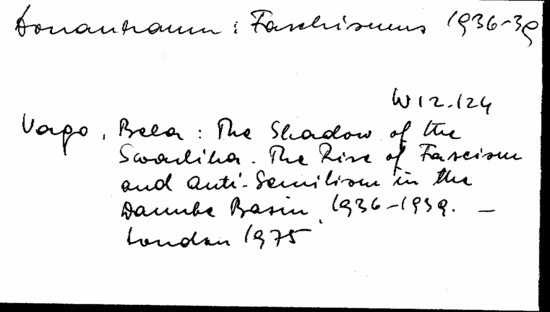 Donauraum : Faschismus 1936-39
W 12.124
Vago, Bela : The Shadow of the
Swastika. The Rise of Fascism
and Anti-Semitism in the
Danube Basin, 1936-1939. —
London 1975